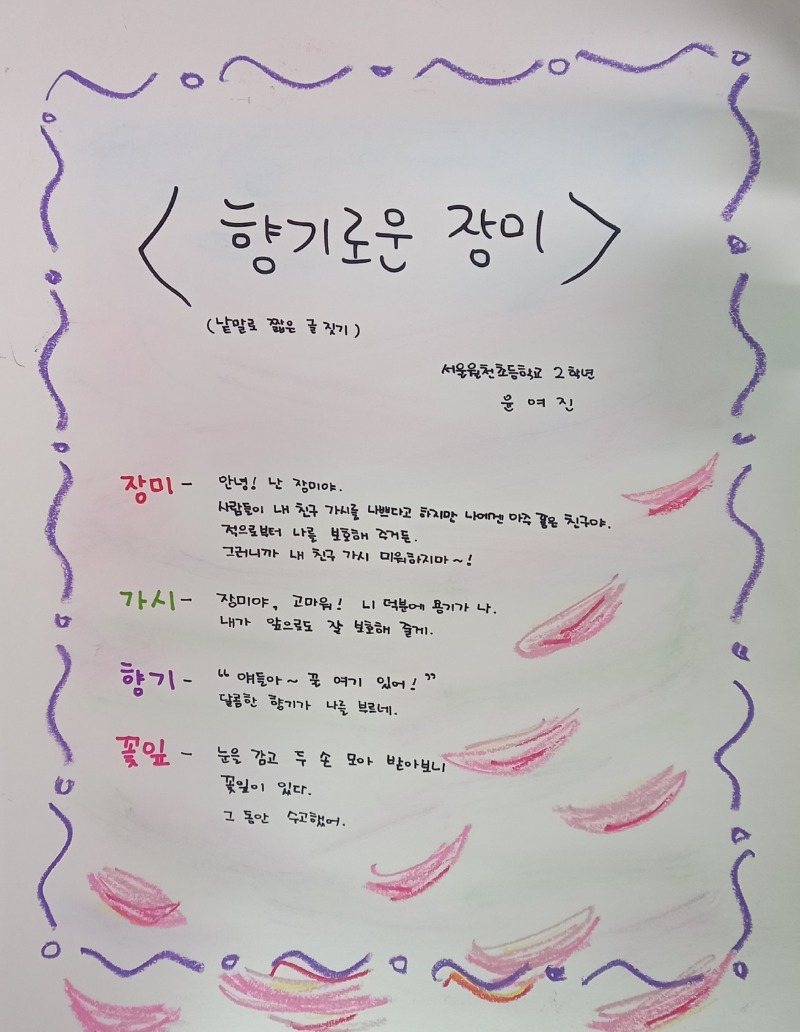 < 향기로운 장미 >
(낱말로 짧은 글 짓기)
서울월천초등학교 2학년
윤여진
장미 - 안녕! 난 장미야.
사람들이 내 친구 가시를 나쁘다고 하지만 나에겐 아주 좋은 친구야.
적으로부터 나를 보호해 주거든.
그러니까 내 친구 가시 미워하지마~!
가시 - 장미야, 고마워! 니 덕분에 용기가 나.
내가 앞으로도 잘 보호해 줄게.
향기 - “얘들아~ 꿀 여기 있어!”
달콤한 향기가 나를 부르네.
꽃잎 - 눈을 감고 두 손 모아 받아보니
꽃잎이 있다.
그 동안 수고했어.